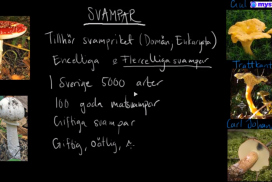 SVAMPAR
Tillhör svampriket (Domän, Eukaryota)
Encelliga & Flercelliga svampar
I Sverige 5000 arter
100 goda matsvampar
Giftiga svampar
Giftig, oätlig,
Carl Johan